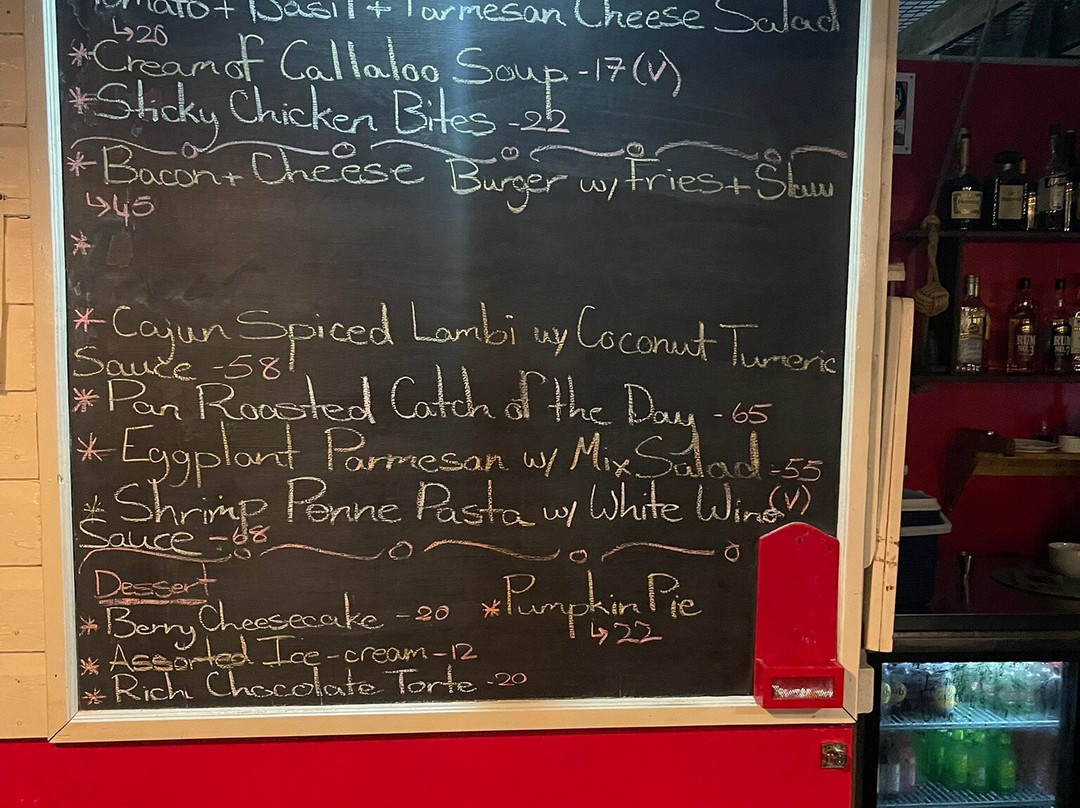 Tomato + Basil + Parmesan Cheese Salad
↳20
* Cream of Callaloo Soup - 17 (V)
* Sticky Chicken Bites - 22
* Bacon + Cheese Burger w/ Fries + Slaw
↳45
*
* Cajun Spiced Lambi w/ Coconut Tumeric
Sauce - 58
* Pan Roasted Catch of the Day - 65
* Eggplant Parmesan w/ Mix Salad - 55
(V)
* Shrimp Penne Pasta w/ White Wine
Sauce - 68
Dessert
* Berry Cheesecake - 20
* Assorted Ice-cream - 12
* Rich Chocolate Torte - 20
* Pumpkin Pie
↳22
RUM
RUM